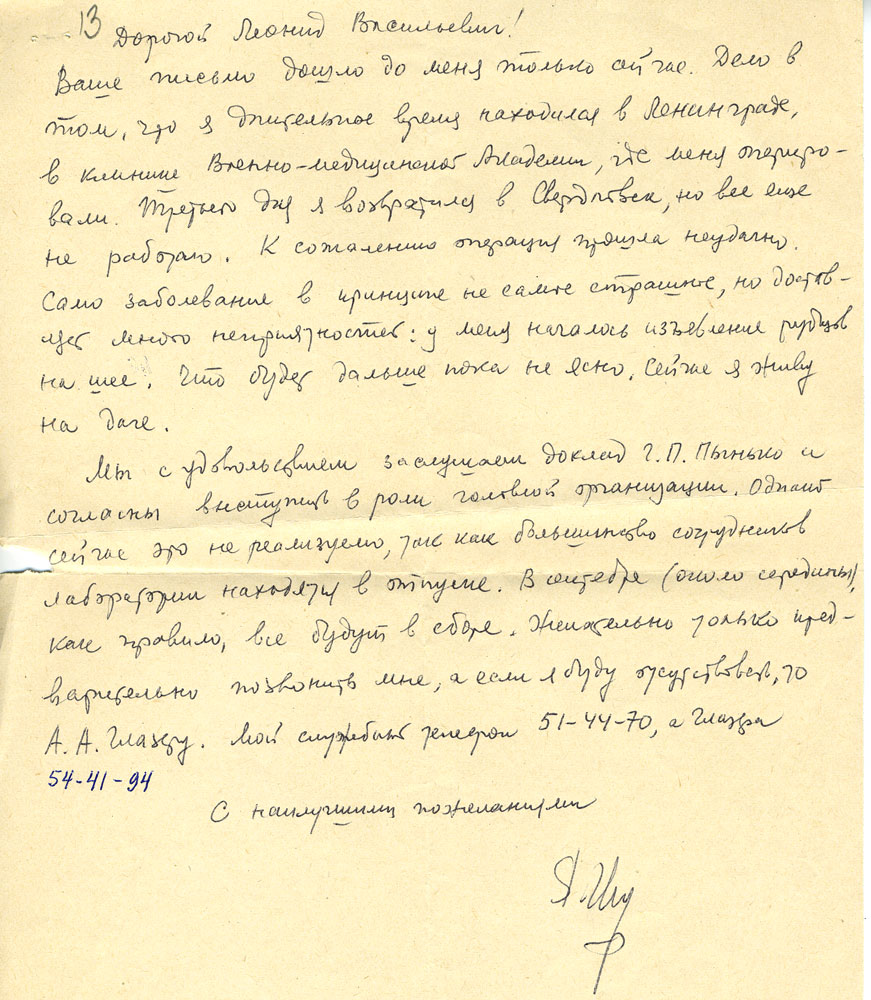 13
Дорогой Леонид Васильевич!
Ваше письмо дошло до меня только сейчас. Дело в
том, что я длительное время находился в Ленинграде,
в клинике Военно-медицинской Академии, где меня опериро-
вали. Третьего дня я возвратился в Свердловск, но все еще
не работаю. К сожалению операция прошла неудачно.
Само заболевание в принципе не самое страшное, но достав-
ляет много неприятностей: у меня началось изъявление рубцов
на шее. Что будет дальше пока не ясно. Сейчас я живу
на даче.
Мы с удовольствием заслушаем доклад Г.П. Пынько и
согласны выступить в роли головной организации. Однако
сейчас это не реализуемо, так как большинство сотрудников
лаборатории находятся в отпуске. В сентябре (около середины),
как правило, все будут в сборе. Желательно только пред-
варительно позвонить мне, а если я буду отсутствовать, то
А.А. Глазеру. Мой служебный телефон 51-44-70, а Глазера
54-41-94
С наилучшими пожеланиями